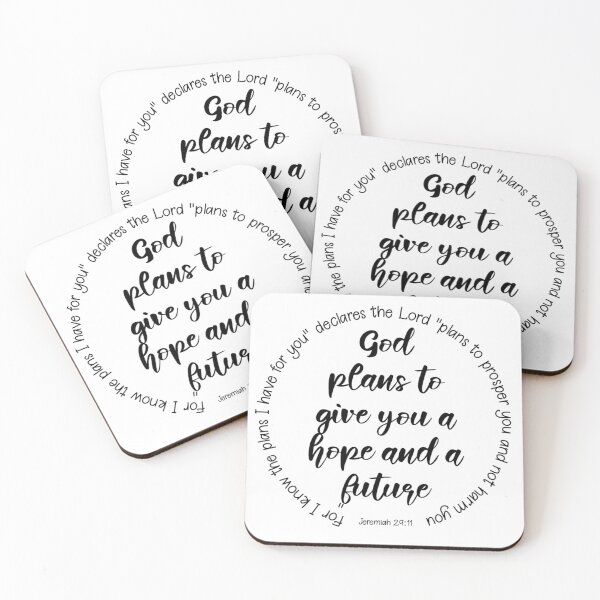 plans I have for you" declares the Lord "plans to prosper
God
plans to
give you a
a
the plans I have for you" declares the Lord "plans to prosper you and not harm
God
plans to
give you a
hope and a
"For I know the plans I have for you" declares the Lord "plans to prosper you and
God
plans to
give you a
hope and
Jeremiah
"For I know the plans I have for you" declares the Lord "plans to prosper you and not harm you
God
plans to
give you a
hope and a
future
Jeremiah 29:11